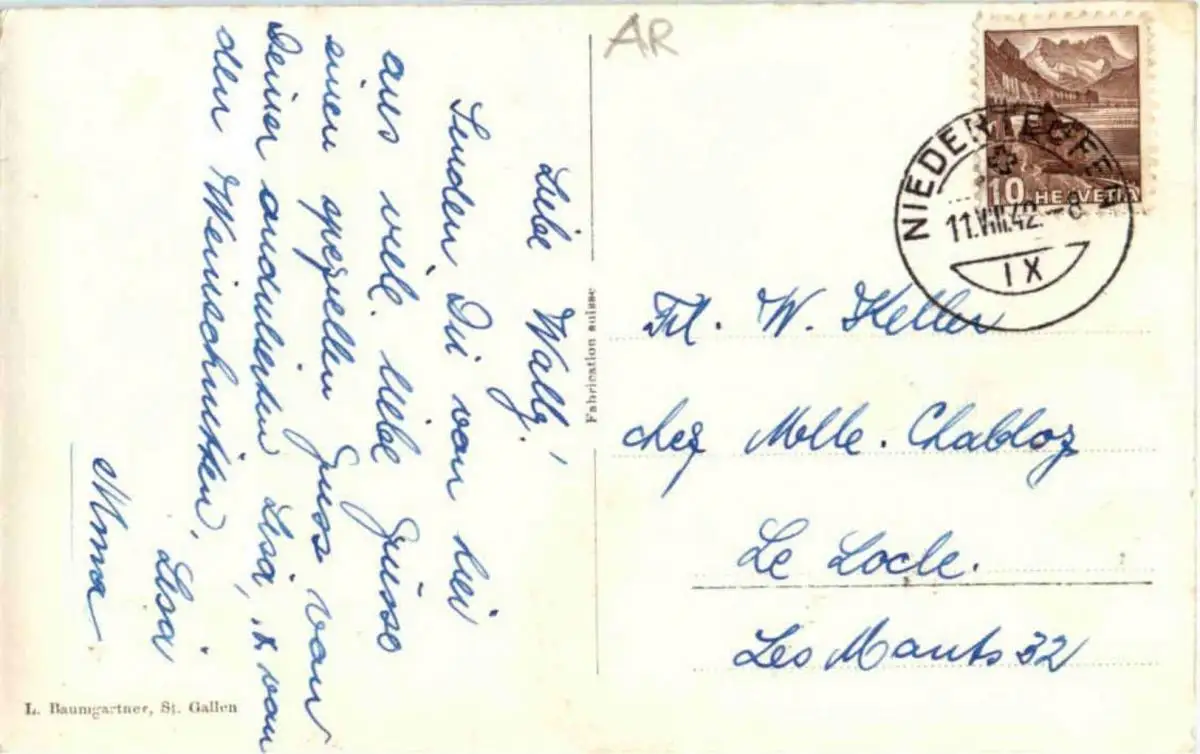 Liebe Wally!
Senden Dir von hier
aus viele liebe Grüsse
einen speziellen Gruss von
Deiner Lisa, von
den
Lisa
Alma
L. Baumgartner, St. Gallen
Fabrication suisse
AR
10 HELVETIA
NIEDERTEUFEN
11.VIII.42.-8
IX
Frl. W. Keller
chez Melle. Chabloz
Le Locle.
Les Monts 32